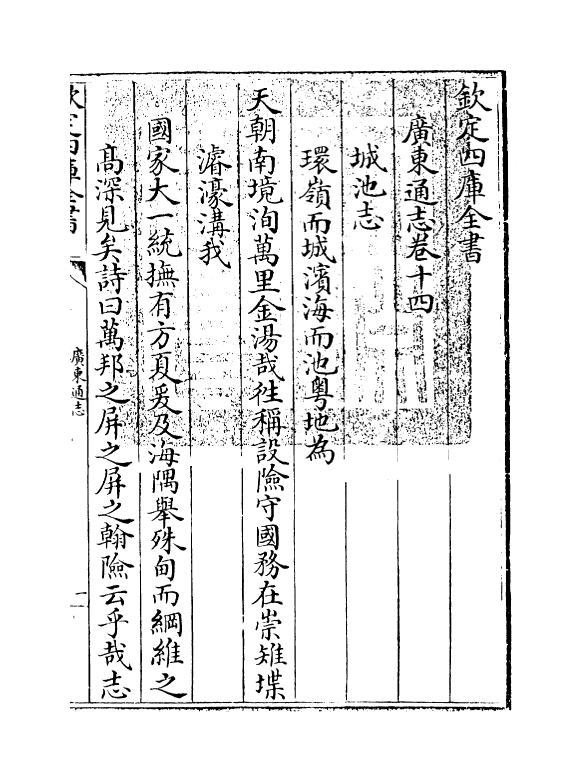 欽定四庫全書
廣東通志卷十四
城池志
環嶺而城濱海而池粤地為
天朝南境洵萬里金湯哉徃稱設險守國務在崇雉堞
濬濠溝我
國家大一統撫有方夏爰及海隅舉殊甸而綱維之
髙深見矣詩曰萬邦之屏之屏之翰險云乎哉志
欽定四庫全書
廣東通志
一